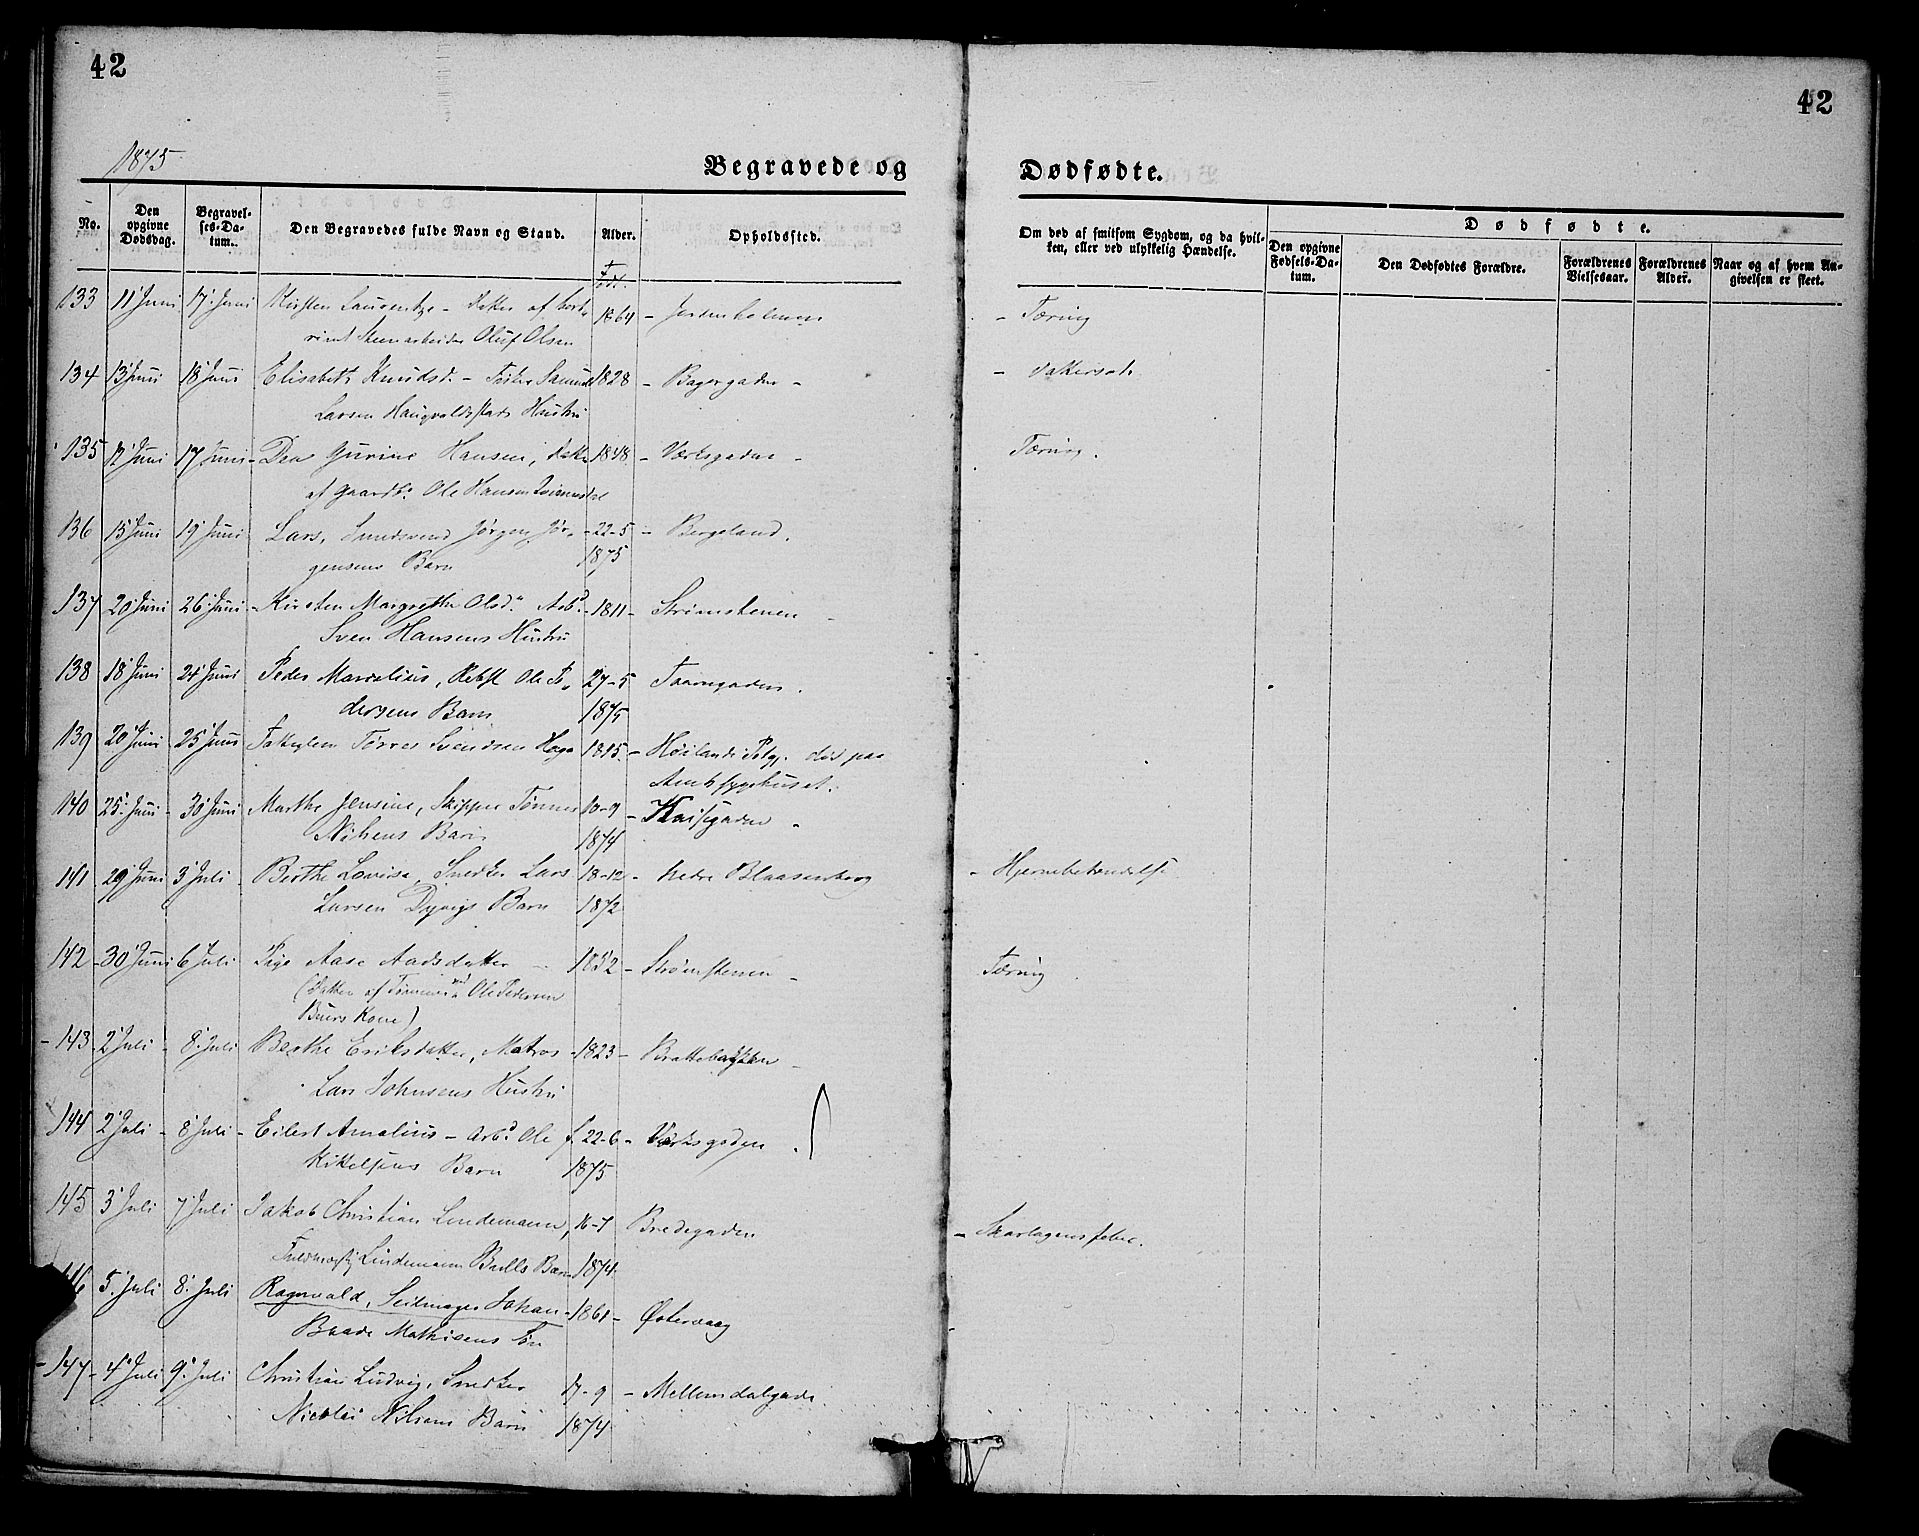 42
42
1875
Begravede og
Dødfødte.
No.
Den opgivne Dødsdag.
Begravelses-Datum.
Den Begravedes fulde Navn og Stand.
Alder.
Opholdssted.
Om død af smitsom Sygdom, og da hvilken, eller ved ulykkelig Hændelse.
Dødfødte.
Den opgivne Fødsels-Datum.
Den Dødfødtes Forældre.
Forældrenes Vielsesaar.
Forældrenes Alder.
Naar og af hvem Angivelsen er skeet.
133 11 Juni 17 Juni Kirsten af 1864 - - Tæring
Oluf Olsen
134 13 Juni 18 Juni Elisabeth Knudsd. - 1828 - Bagergaden -
Larsen Haugvaldstads Hustru
135 12 Juni 17 Juni - Gurine Hansen, 1848 - Værksgaden - Tæring.
af Gaardb. Ole Hansen
136 15 Juni 19 Juni Lars, Jørgen Jør- - 22-5 - Bergeland.
gensens Barn 1875
137 20 Juni 26 Juni - Kirsten Margrethe Olsd. Arbd. - 1811 - Strømstenen -
Sven Hansens Hustru
138 18 Juni 24 Juni Peder Marcelius, Rebsl. Ole Pe- 27-5 Taarngaden.
dersens Barn 1875
139 20 Juni 25 Juni Tørres Svendsen 1815 - Høilands Pstgj. død paa
Amtssygehuset.
140 25 Juni - 30 Juni Marthe Jensine, Skipper Tønnes 10-9 -
Nilsens Barn 1874
141 29 Juni 3 Juli Berthe Lovisa, Snedker Lars 18-12 - Nedre Blaasenberg - Hjernebetændelse
Larsen Dyvigs Barn 1872
142 - 30 Juni 6 Juli Pige Aase Aadsdatter - 1852 - Strømstenen - Tæring
(Datter af Ole Pedersen
Buers Kone)
- 143 - 2 Juli - 8 Juli Berthe Eriksdatter, Matros - 1823 - Brattebakken -
Lars Johnsens Hustru
144 2 Juli - 8 Juli - Eilert Amalius - Arbd. Ole f. 22-6 - Værksgaden.
Kittelsens Barn 1875
145 3 Juli 7 Juli Jakob Christian Lindemann, 16-7 Bredegaden - Skarlagensfeber.
Lindemann Bulls Barn 1874
146 5 Juli 8 Juli Ragnvald, Seilmager Johan - 1861 - Østervaag
Baade Mathisens Søn
- 147 - 4 Juli 9 Juli Christian Ludvig, Snedker 17-9 - Mellemdalgade.
Nicolai Nilsens Barn 1874